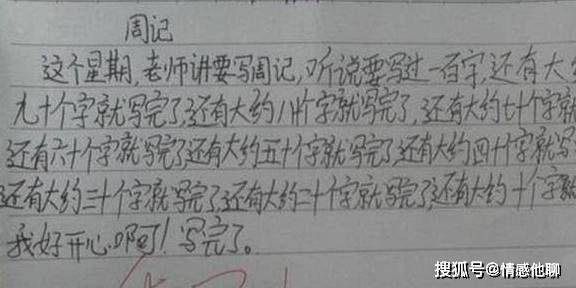 周记
这个星期,老师讲要写周记,听说要写过一百字,还有大
九十个字就写完了,还有大约八十个字就写完了,还有大约七十个字就
还有六十个字就写完了还有大约五十个字就写完了,还有大约四十个字就写
还有大约三十个字就写完了,还有大约二十个字就写完了,还有大约十个字就
我好开心啊!写完了。
搜狐号@情感他聊